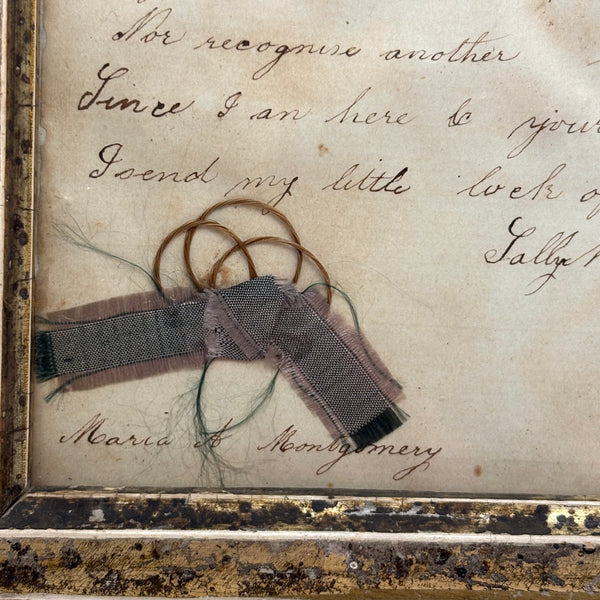 Nor recognise another
Since I an here & your
I send my little lock of
Sally
Maria A Montgomery